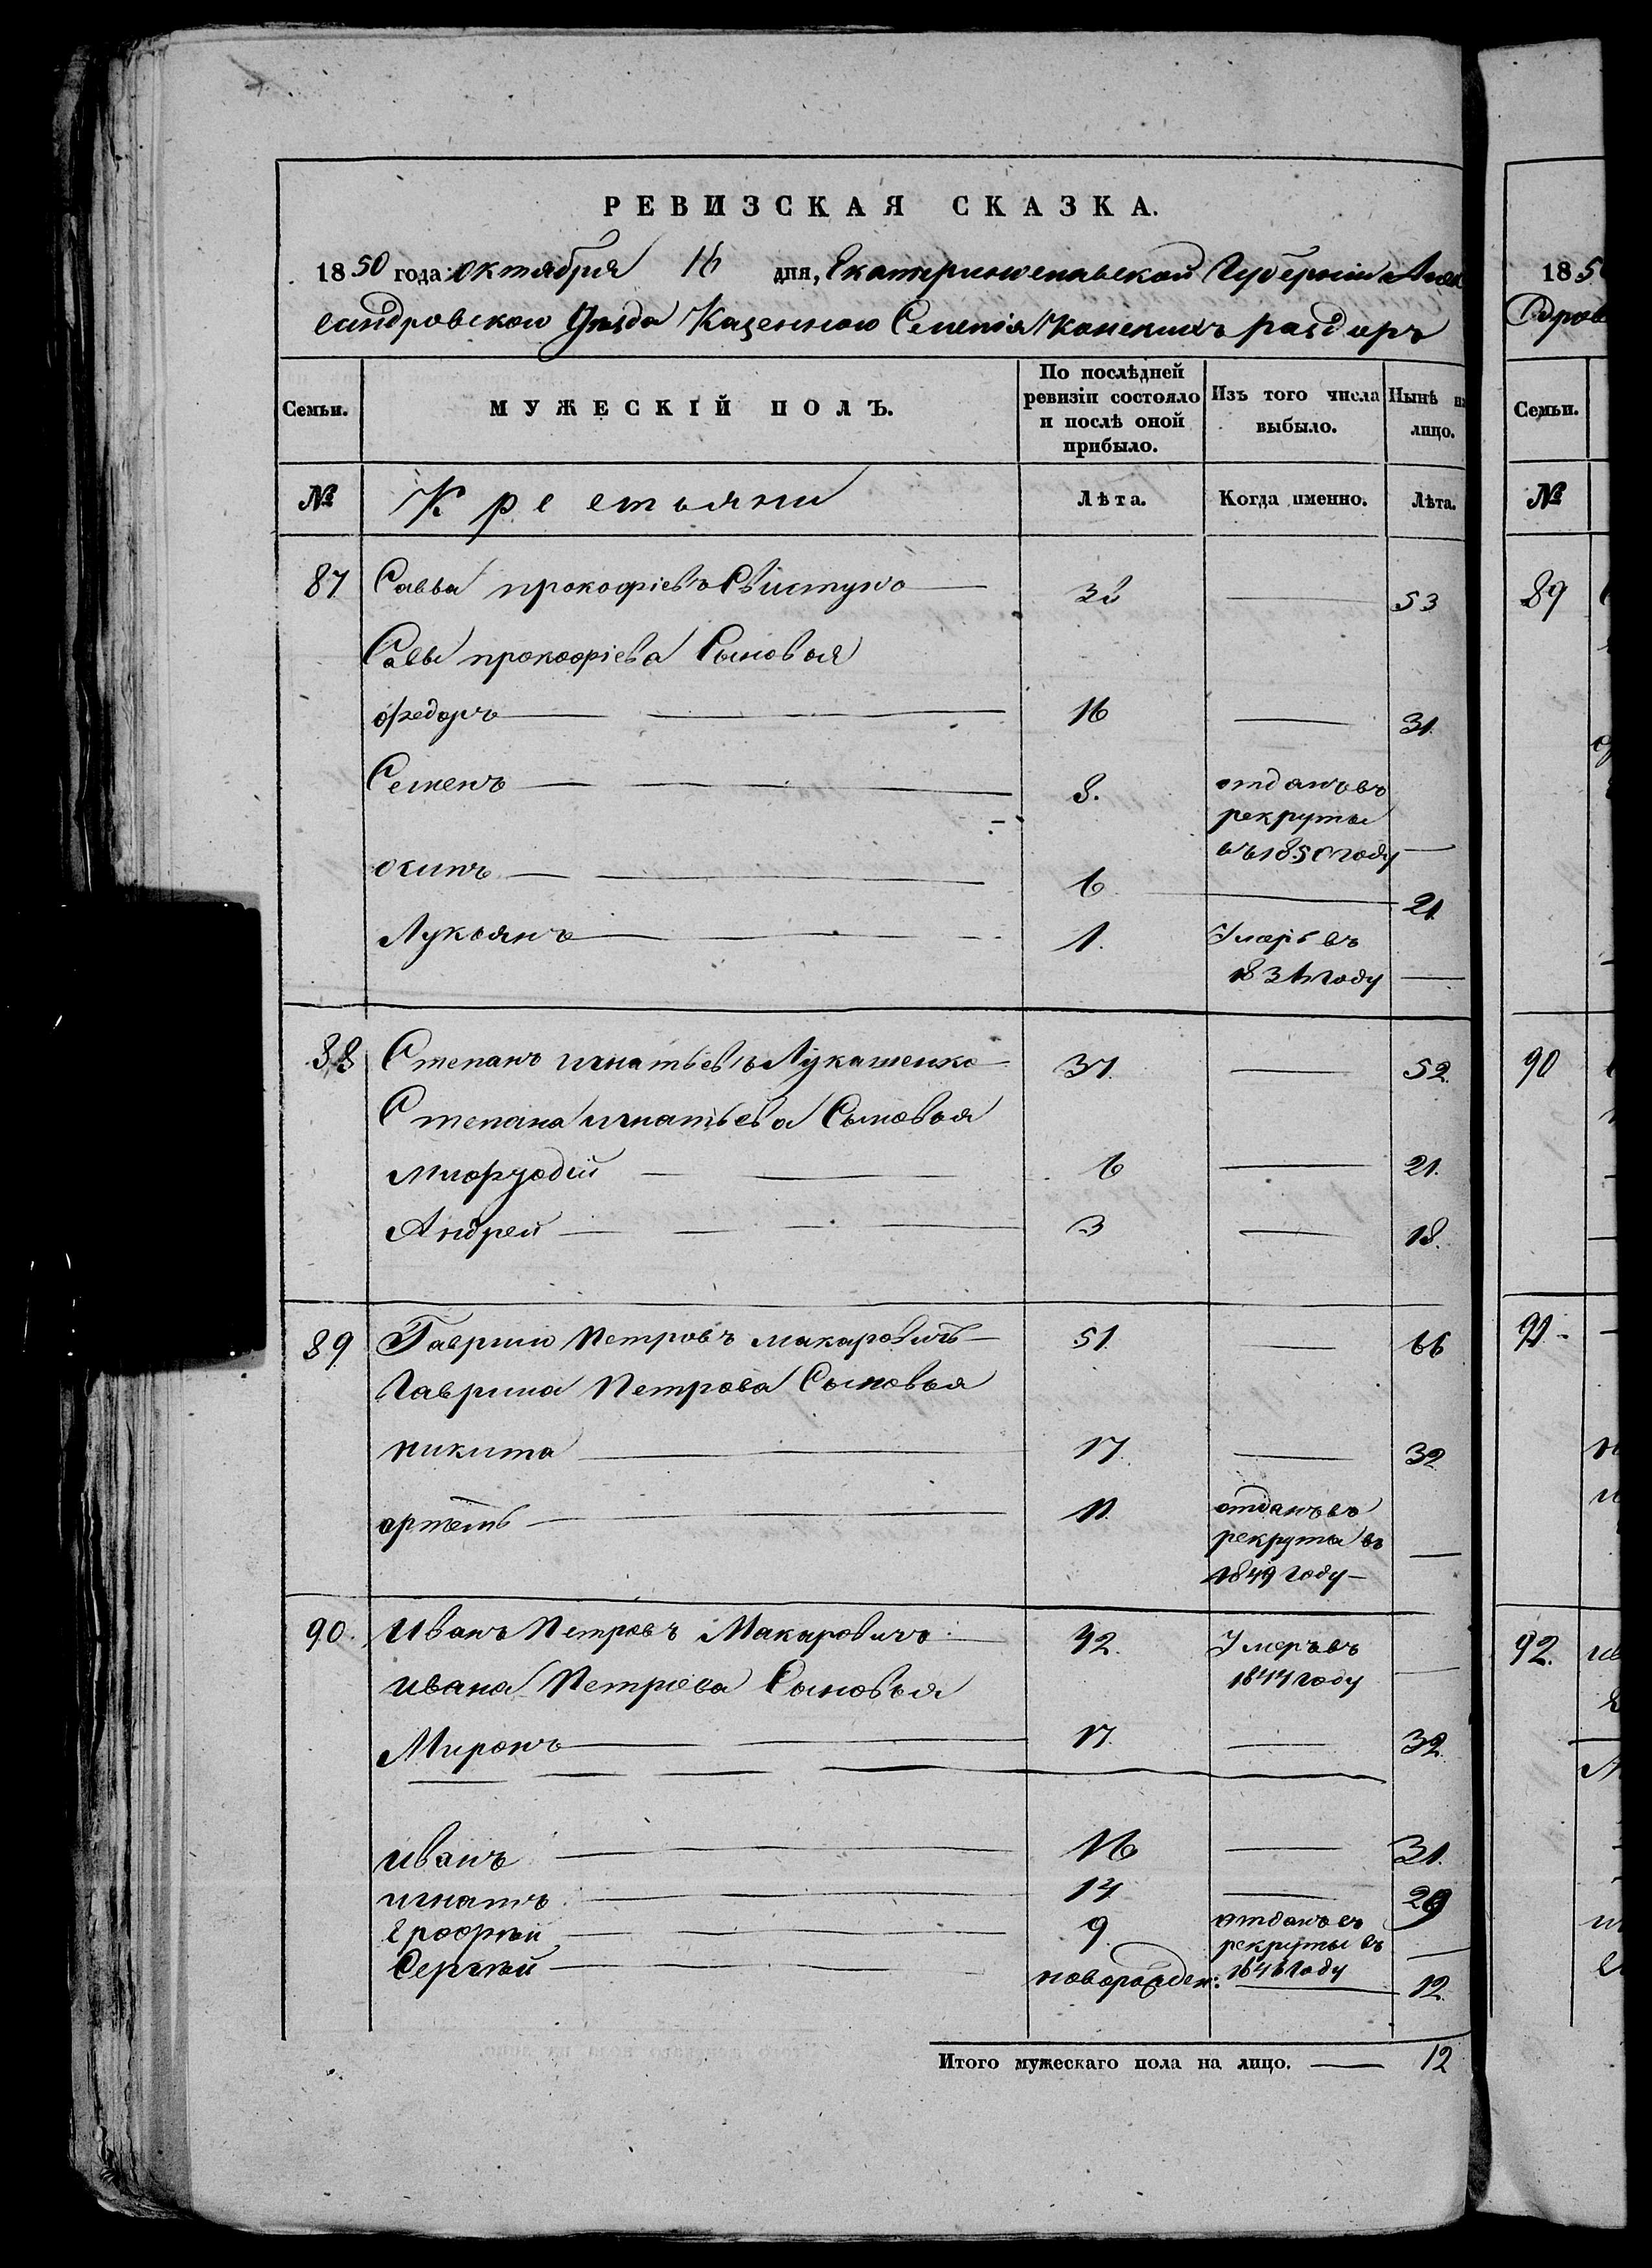 РЕВИЗСКАЯ СКАЗКА.
1850 года октября 16 дня, Екатеринославской Губерніи Алек
сандровского Уезда Казенного Селенія Конских Раздоръ
Семьи. МУЖЕСКІЙ ПОЛЪ. По послѣдней ревизіи состояло и послѣ оной прибыло. Изъ того числа выбыло. Нынѣ на лицо.
№ Крестьяни Лѣта. Когда именно. Лѣта.
87 Савва прокофіевъ Свистунъ 38 — 53
Савы прокофіева Сыновья
федоръ 16 — 31.
Семенъ 8. отданъ въ рекруты въ 1850 году —
осипъ 6 — 21
Лукьянъ 1. Умеръ въ 183 году —
88 Степанъ игнатьевъ Лукашенко 37. — 52.
Степана игнатьева Сыновья
6 — 21.
Андрей 3 — 18.
89 Гаврило Петровъ макаровичъ 51. — 66
Гаврила Петрова Сыновья
никита 17. — 32
артемъ 11. отданъ въ рекруты въ 1849 году —
90. Иванъ Петровъ Макаровичъ 42. Умеръ въ 1844 году —
ивана Петрова Сыновья
Миронъ 17. — 32.
иванъ 16 — 31.
игнатъ 14 — 29
Ерофѣй 9. отданъ въ рекруты въ 1846 году —
Сергѣй новорожден: — 12.
Итого мужескаго пола на лицо. — 12
185
Семьи.
№
89
90
91.
92.